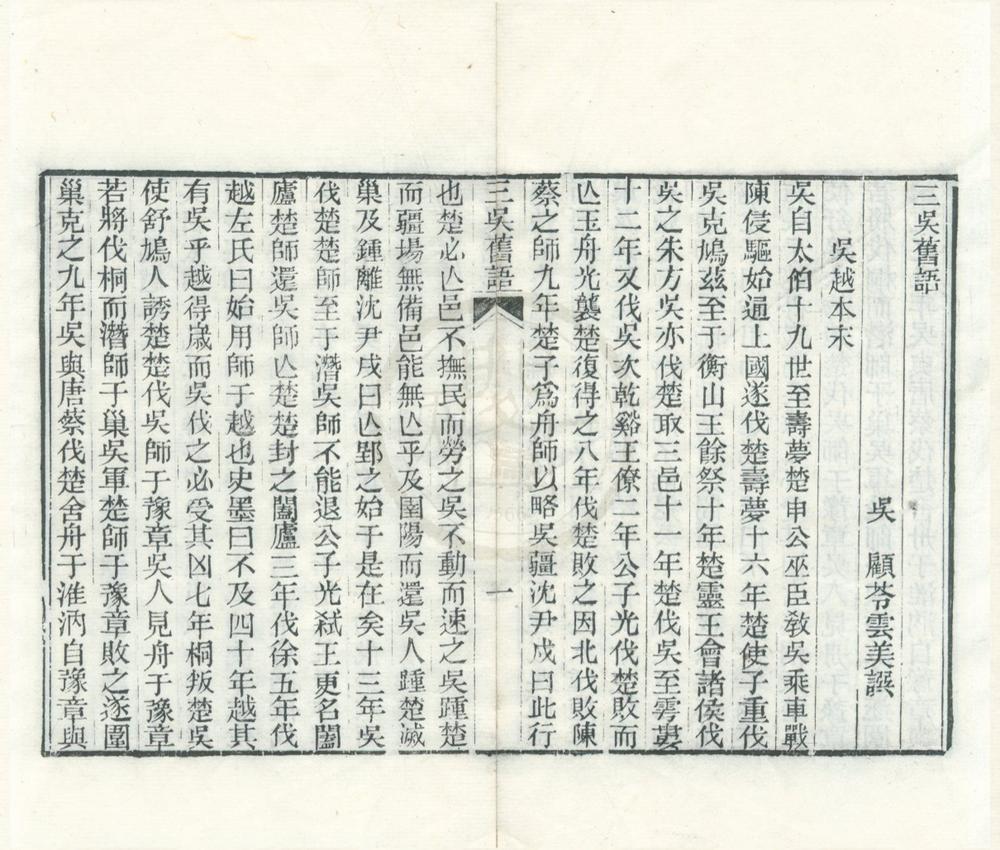 三吳舊語
吳　顧苓雲美譔
吳越本末
吳自太伯十九世至壽夢楚申公巫臣敎吳乘車戰
陳侵驅始通上國遂伐楚壽夢十六年楚使子重伐
吳克鳩茲至于衡山王餘祭十年楚靈王會諸侯伐
吳之朱方吳亦伐楚取三邑十一年楚伐吳至雩婁
十二年又伐吳次乾谿王僚二年公子光伐楚敗而
亾王舟光襲楚復得之八年伐楚敗之因北伐敗陳
蔡之師九年楚子爲舟師以略吳疆沈尹戌曰此行
三吳舊語
一
也楚必亾邑不撫民而勞之吳不動而速之吳踵楚
而疆場無備邑能無亾乎及圉陽而還吳人踵楚滅
巢及鍾離沈尹戌曰亾郢之始于是在矣十三年吳
伐楚楚師至于潛吳師不能退公子光弒王更名闔
廬楚師還吳師亾楚楚封之闔廬三年伐徐五年伐
越左氏曰始用師于越也史墨曰不及四十年越其
有吳乎越得歲而吳伐之必受其凶七年桐叛楚吳
使舒鳩人誘楚楚伐吳師于豫章吳人見舟于豫章
若將伐桐而潛師于巢吳軍楚師于豫章敗之遂圍
巢克之九年吳與唐蔡伐楚舍舟于淮汭自豫章與